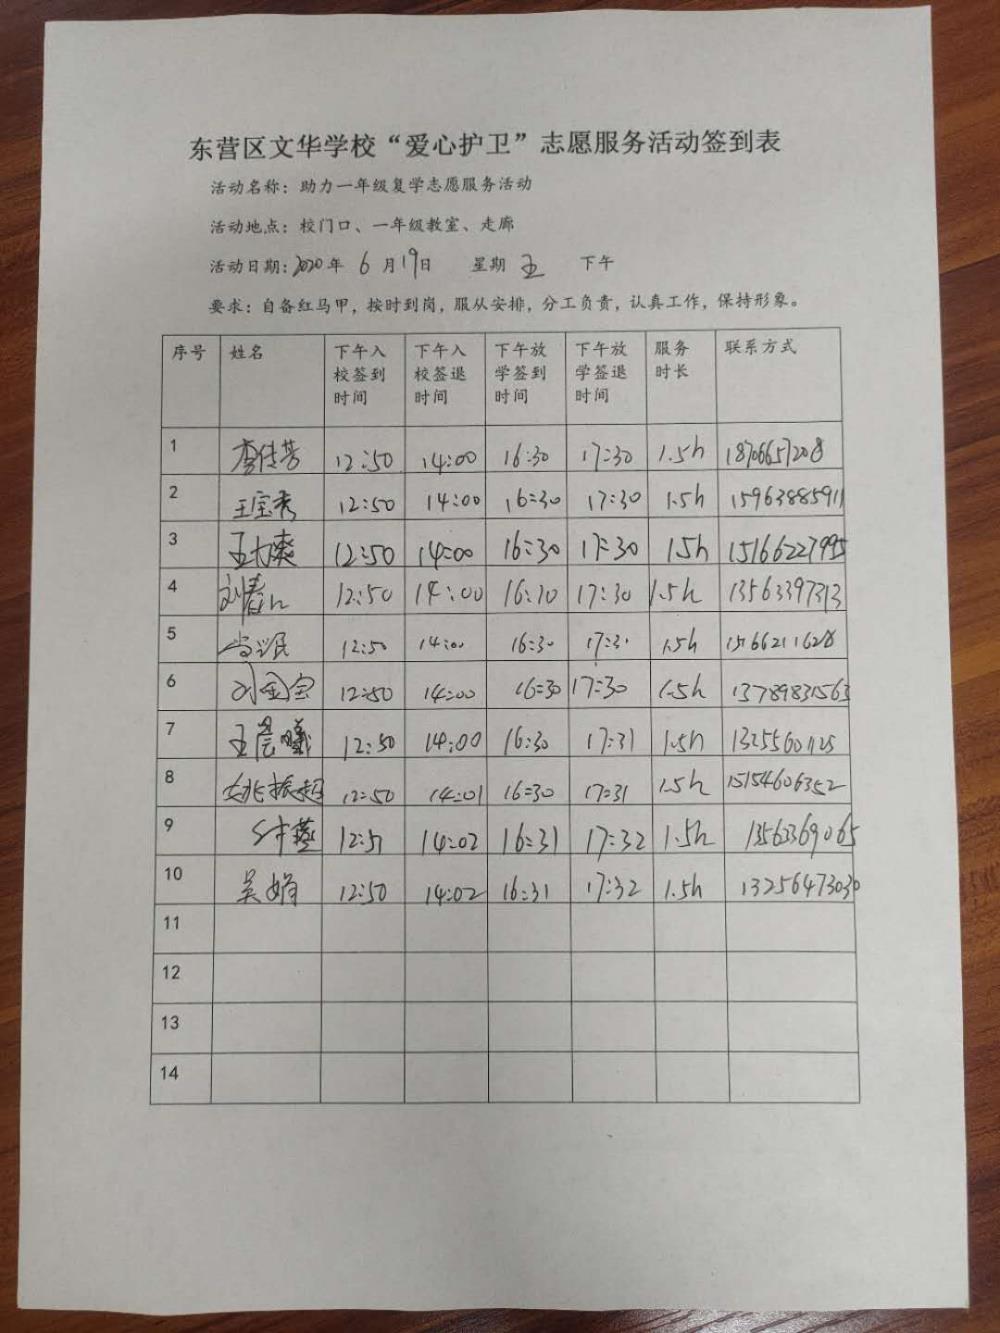 东营区文华学校“爱心护卫”志愿服务活动签到表
活动名称：助力一年级复学志愿服务活动
活动地点：校门口、一年级教室、走廊
活动日期：2020年 6 月19日 星期 五 下午
要求：自备红马甲，按时到岗，服从安排，分工负责，认真工作，保持形象。
序号 姓名 下午入校签到时间 下午入校签退时间 下午放学签到时间 下午放学签退时间 服务时长 联系方式
1 李传芳 12:50 14:00 16:30 17:30 1.5h 18706657208
2 王宝秀 12:50 14:00 16:30 17:30 1.5h 15963885911
3 12:50 14:00 16:30 17:30 1.5h 15166227995
4 12:50 14:00 16:30 17:30 1.5h 13563397313
5 12:50 14:00 16:30 17:31 1.5h 15166211628
6 刘金宝 12:50 14:00 16:30 17:30 1.5h 13789831563
7 王晨曦 12:50 14:00 16:30 17:31 1.5h 13255601125
8 姚振超 12:50 14:01 16:30 17:31 1.5h 15154606352
9 12:51 14:02 16:31 17:32 1.5h 13563369065
10 吴娟 12:50 14:02 16:31 17:32 1.5h 13256473030
11
12
13
14